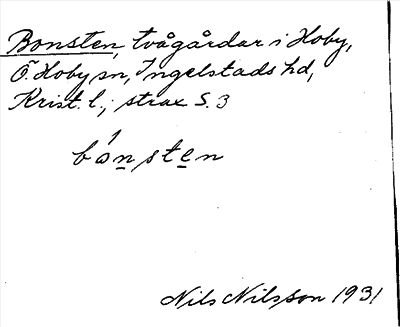 Bonsten, tvågårdar i Hoby,
Ö. Hoby sn, Ingelstads hd,
Krist. l.; strax S. 3
bónsten
Nils Nilsson 1931